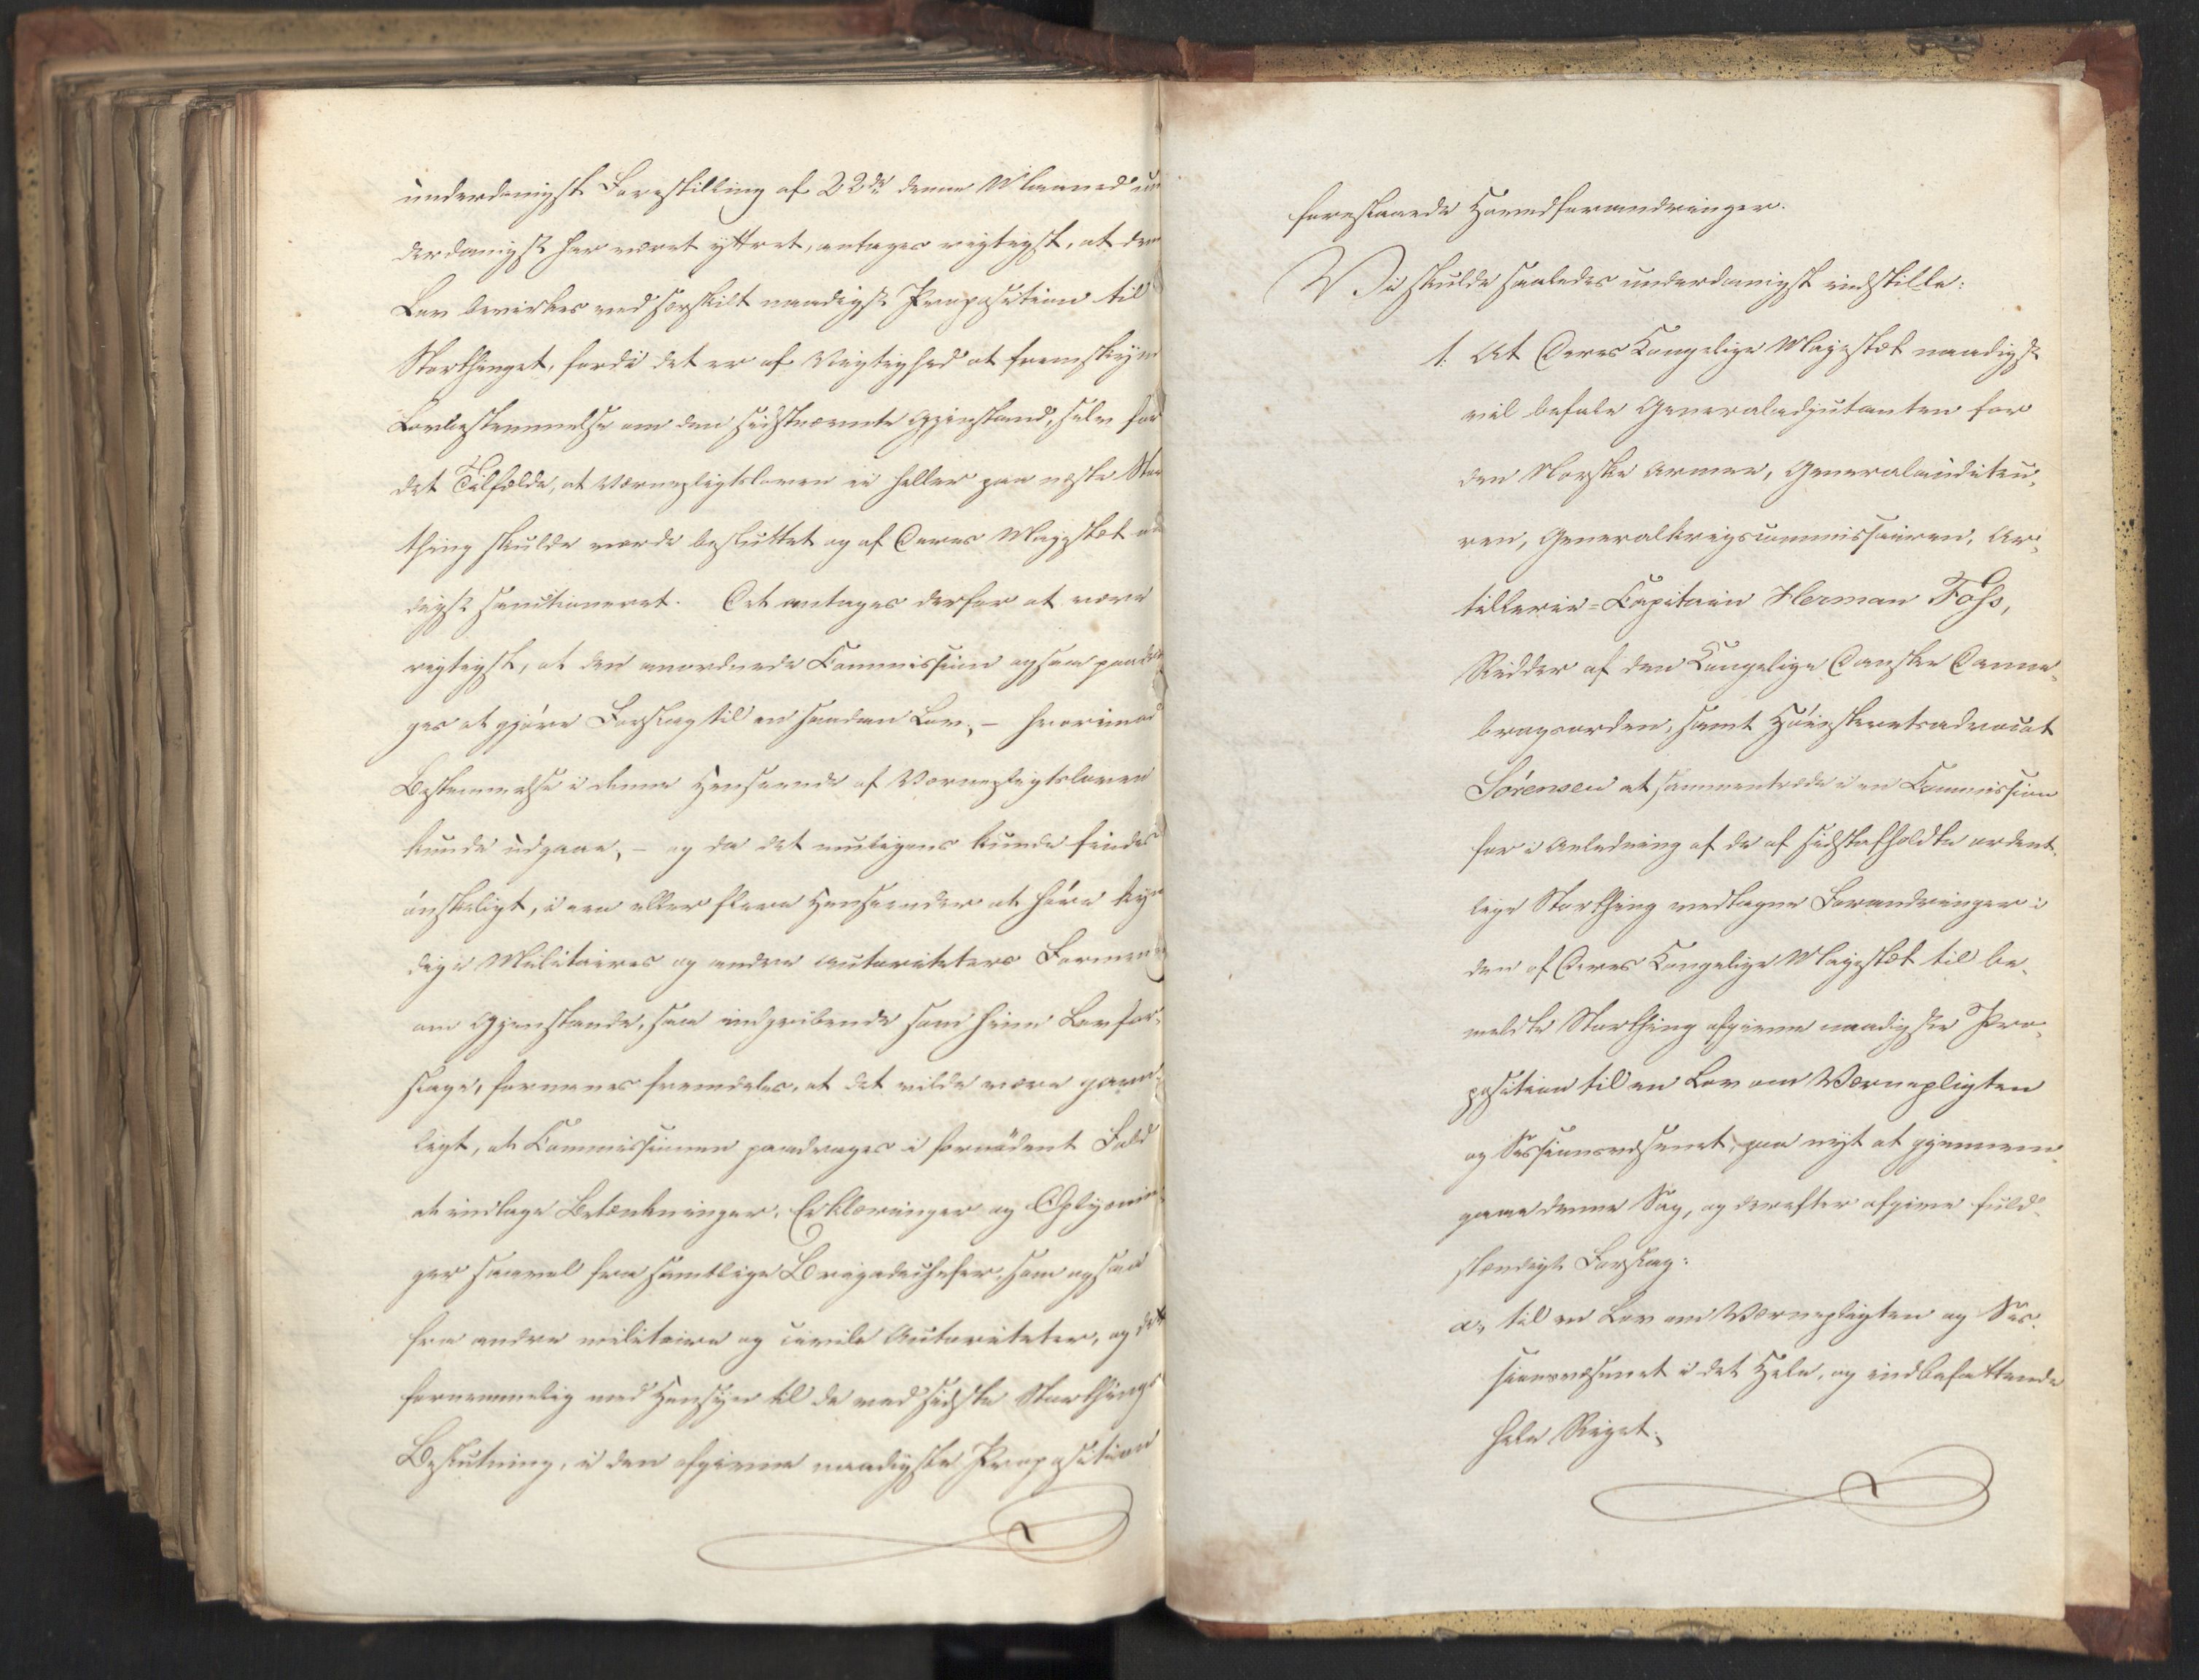 underdanigst Forestilling af 22de denne Maaned un
derdanigst har været yttret, antages rigtigst, at den
Lov bevirkes ved særskilt naadigst Proposition til
Storthinget, fordi det er af Vigtighed at fremskyn
Lovbestemmelse om den sidstnævnte Gjenstand, selv for
det Tilfælde, at Værnepligtsloven ei heller paa næste Stor
thing skulde vorde besluttet og af Deres Majestæt naa
digst sanctioneret. Det antages derfor at være
rigtigst, at den anordnede Commission ogsaa paadra
ges at gjøre Forslag til en saadan Lov, – hvorimod
Bestemmelse i denne Henseende af Værnepligtsloven
kunde udgaae, – og da det muligens kunde findes
ønskeligt, i een eller flere Henseender at høre kyn
dige Militaires og andre Autoriteters Formening
om Gjenstande, saa indgribende som hine Lovfor-
slage, formenes fremdeles, at det vilde være gavn-
ligt, at Commissionen paadrages i fornødent Fald
at indtage Betænkninger, Erklæringer og Oplysnin-
ger saavel fra samtlige Brigadechefer, som ogsaa
fra andre militaire og civile Autoriteter, og det
fornemmelig med Hensyn til de ved sidste Storthings
Beslutning, i den afgivne naadigste Proposition
foreslaaede Hovedforandringer.
Vi skulde saaledes underdanigst indstille:
1. At Deres Kongelige Majestæt naadigst
vil befale Generaladjutanten for
den Norske Armee, Generalauditeu-
ren, Generalkrigscommissairen, Ar-
tillerie=Capitain Herman Foss,
Ridder af den Kongelige Danske Danne-
brogsorden, samt Høiesteretsadvocat
Sørensen at sammentræde i en Commission
for i Anledning af de af sidstafholdte ordent-
lige Storthing vedtagne Forandringer i
den af Deres Kongelige Majestæt til be-
meldte Storthing afgivne naadigste Pro-
position til en Lov om Værnepligten
og Sessionsvæsenet, paa nyt at gjennem-
gaae denne Sag, og derefter afgive fuld-
stændigt Forslag:
a, til en Lov om Værnepligten og Ses-
sionsvæsenet i det Hele, og indbefattende
hele Riget,